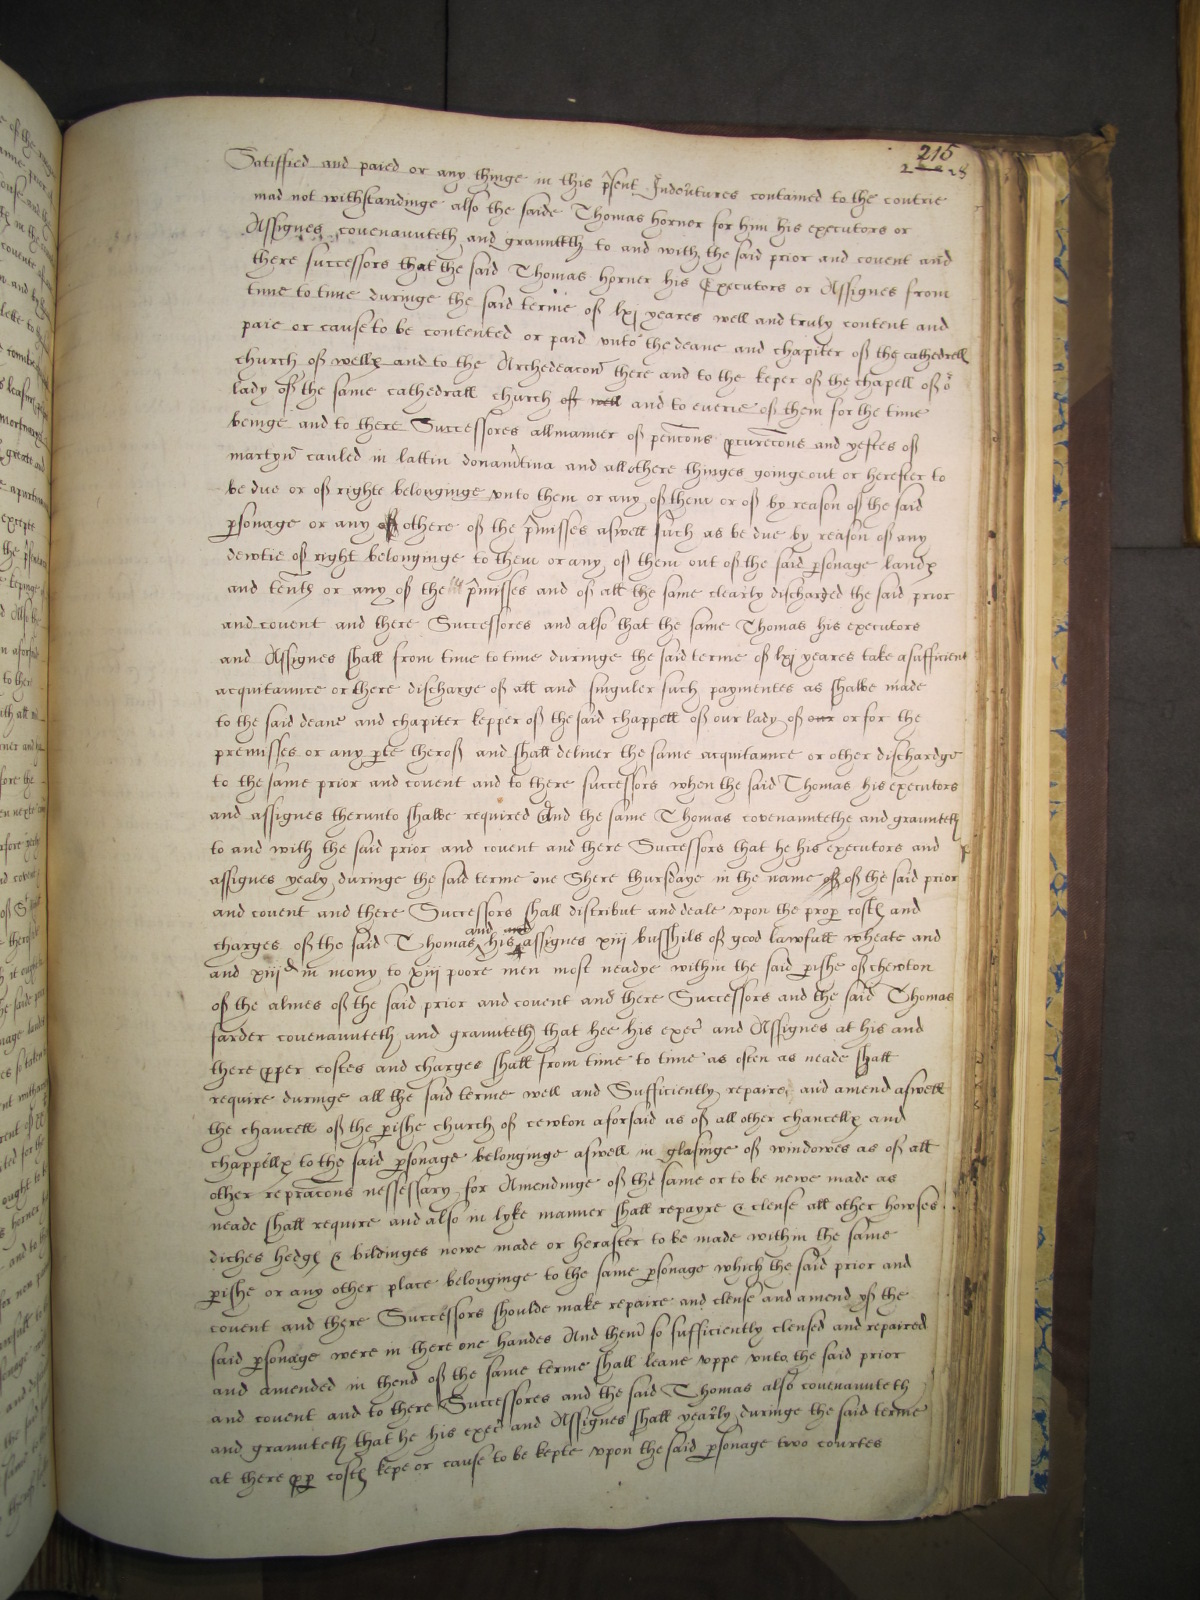 215
228
Satiffied and paied or any thinge in this p̃sent Indentures contained to the contrie
mad not withstandinge also the saide Thomas horner for him his executors or
Assignes covenaunteth and graunteth to and with the said prior and covent and
there successors that the said Thomas horner his Executors or Assignes from
time to time duringe the said terme of lxj yeares well and truly content and
paie or cause to be contented or paid unto the deane and chapiter of the cathedrell
church of wellꝭ and to the Archedeacon there and to the keper of the chapell of oͬ
lady of the same cathedrall church of well and to everie of them for the time
beinge and to there Successores allmanner of penc̃ons ꝓcurec̃ons and yeftes of
martyn cauled in lattin and allothere thinges goinge out or herefter to
be due or of righte belonginge unto them or any of them or of by reason of the said
ꝑsonage or any of othere of the p̃misses aswell such as be due by reason of any
dewtie of right belonginge to them or any of them out of the said ꝑsonage landꝭ
and tenthꝭ or any of the p̃misses and of all the same clearly discharded the said prior
and covent and there Successores and also that the same Thomas his executors
and Assignes shall from time to time duringe the said terme of lxj yeares take a sufficient
acquitaunce or there discharge of all and singuler such paymentes as shalbe made
to the said deane and chapiter kepper of the said chappell of our lady of our or for the
premisses or any ꝑte therof and shall deliver the same acquitaunce or other dischardge
to the same prior and covent and to there successors when the said Thomas his executors
and assignes therunto shalbe required And the same Thomas covenauntethe and graunteth
to and with the said prior and covent and there Successors that he his executors and
assignes yealy duringe the said terme one Shere thursdaye in the name of of the said prior
and covent and there Successors shall distribut and deale upon the proꝑ costꝭ and
charges of the said Thomas and his and assignes xiij busshils of good lawfull wheate and
and xiij d in mony to xiij poore men most neadye within the said ꝑishe of chewton
of the almes of the said prior and covent and there Successors and the said Thomas
farder covenaunteth and graunteth that hee his exec̃ and Assignes at his and
there ꝓper costes and charges shall from time to time as often as neade shall
require duringe all the said terme well and Sufficiently repaire and amend aswell
the chancell of the ꝑishe church of cewton aforsaid as of all other chancellꝭ and
chappellꝭ to the said ꝑsonage belonginge aswell in glasinge of windowes as of all
other reprac̃ons nessessary for Amendinge of the same or to be newe made as
neade shall require and also in lyke manner shall repayre & clense all other howses
diches hedgꝭ & bildinges nowe made or herafter to be made within the same
ꝑishe or any other place belonginge to the same ꝑsonage which the said prior and
covent and there Successors shoulde make repaire and clense and amend yf the
said ꝑsonage were in there one handes And them so sufficiently clensed and repaired
and amended in thend of the same terme shall leave uppe unto the said prior
and covent and to there Successores and the said Thomas also covenaunteth
and graunteth that he his exec̃ and Assignes shall yearly duringe the said terme
at there ꝓꝑ costꝭ kepe or cause to be kepte upon the said ꝑsonage two courtes